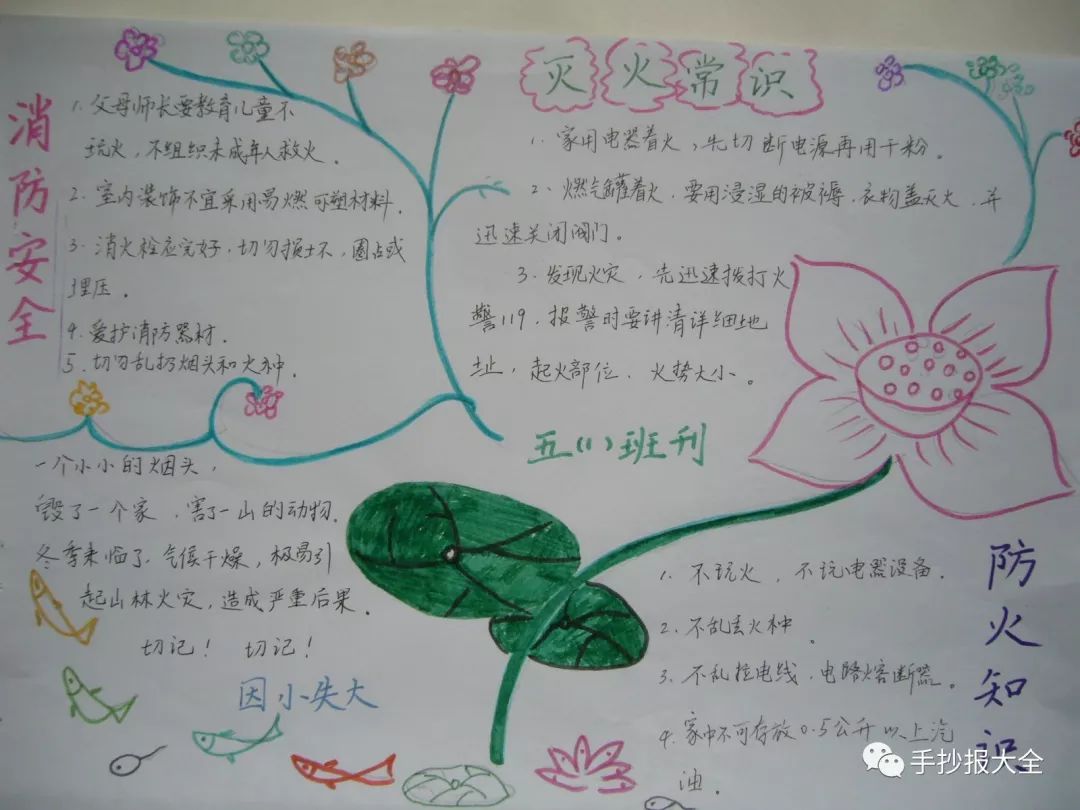 消防安全
1. 父母师长要教育儿童不
玩火，不组织未成年人救火。
2. 室内装饰不宜采用易燃可塑材料.
3. 消火栓应完好，切勿损坏，圈占或
埋压。
4. 爱护消防器材.
5. 切勿乱扔烟头和火种.
灭火常识
1. 家用电器着火，先切断电源再用干粉。
2、燃气罐着火，要用浸湿的被褥、衣物盖灭火，并
迅速关闭阀门。
3. 发现火灾，先迅速拨打火
警119，报警时要讲清详细地
址，起火部位、火势大小。
五(1)班刊
一个小小的烟头，
毁了一个家，害了一山的动物.
冬季来临了，气候干燥，极易引
起山林火灾，造成严重后果.
切记！ 切记！
因小失大
防火知识
1. 不玩火，不玩电器设备.
2. 不乱丢火种.
3. 不乱拉电线，电路熔断器。
4. 家中不可存放0.5公升以上汽
油.
手抄报大全